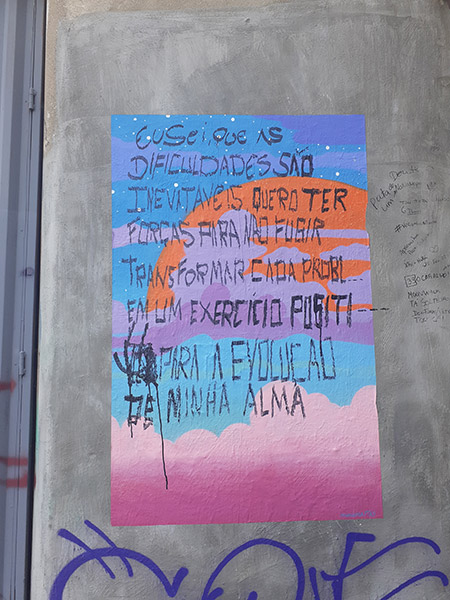 EU SEI, QUE AS
DIFICULDADES SÃO
INEVITAVEIS QUERO TER
FORÇAS PARA NÃO FUGIR
TRANSFORMAR CADA PROBL---
EM UM EXERCICIO POSITI---
PARA A EVOLUÇÃO
DE MINHA ALMA